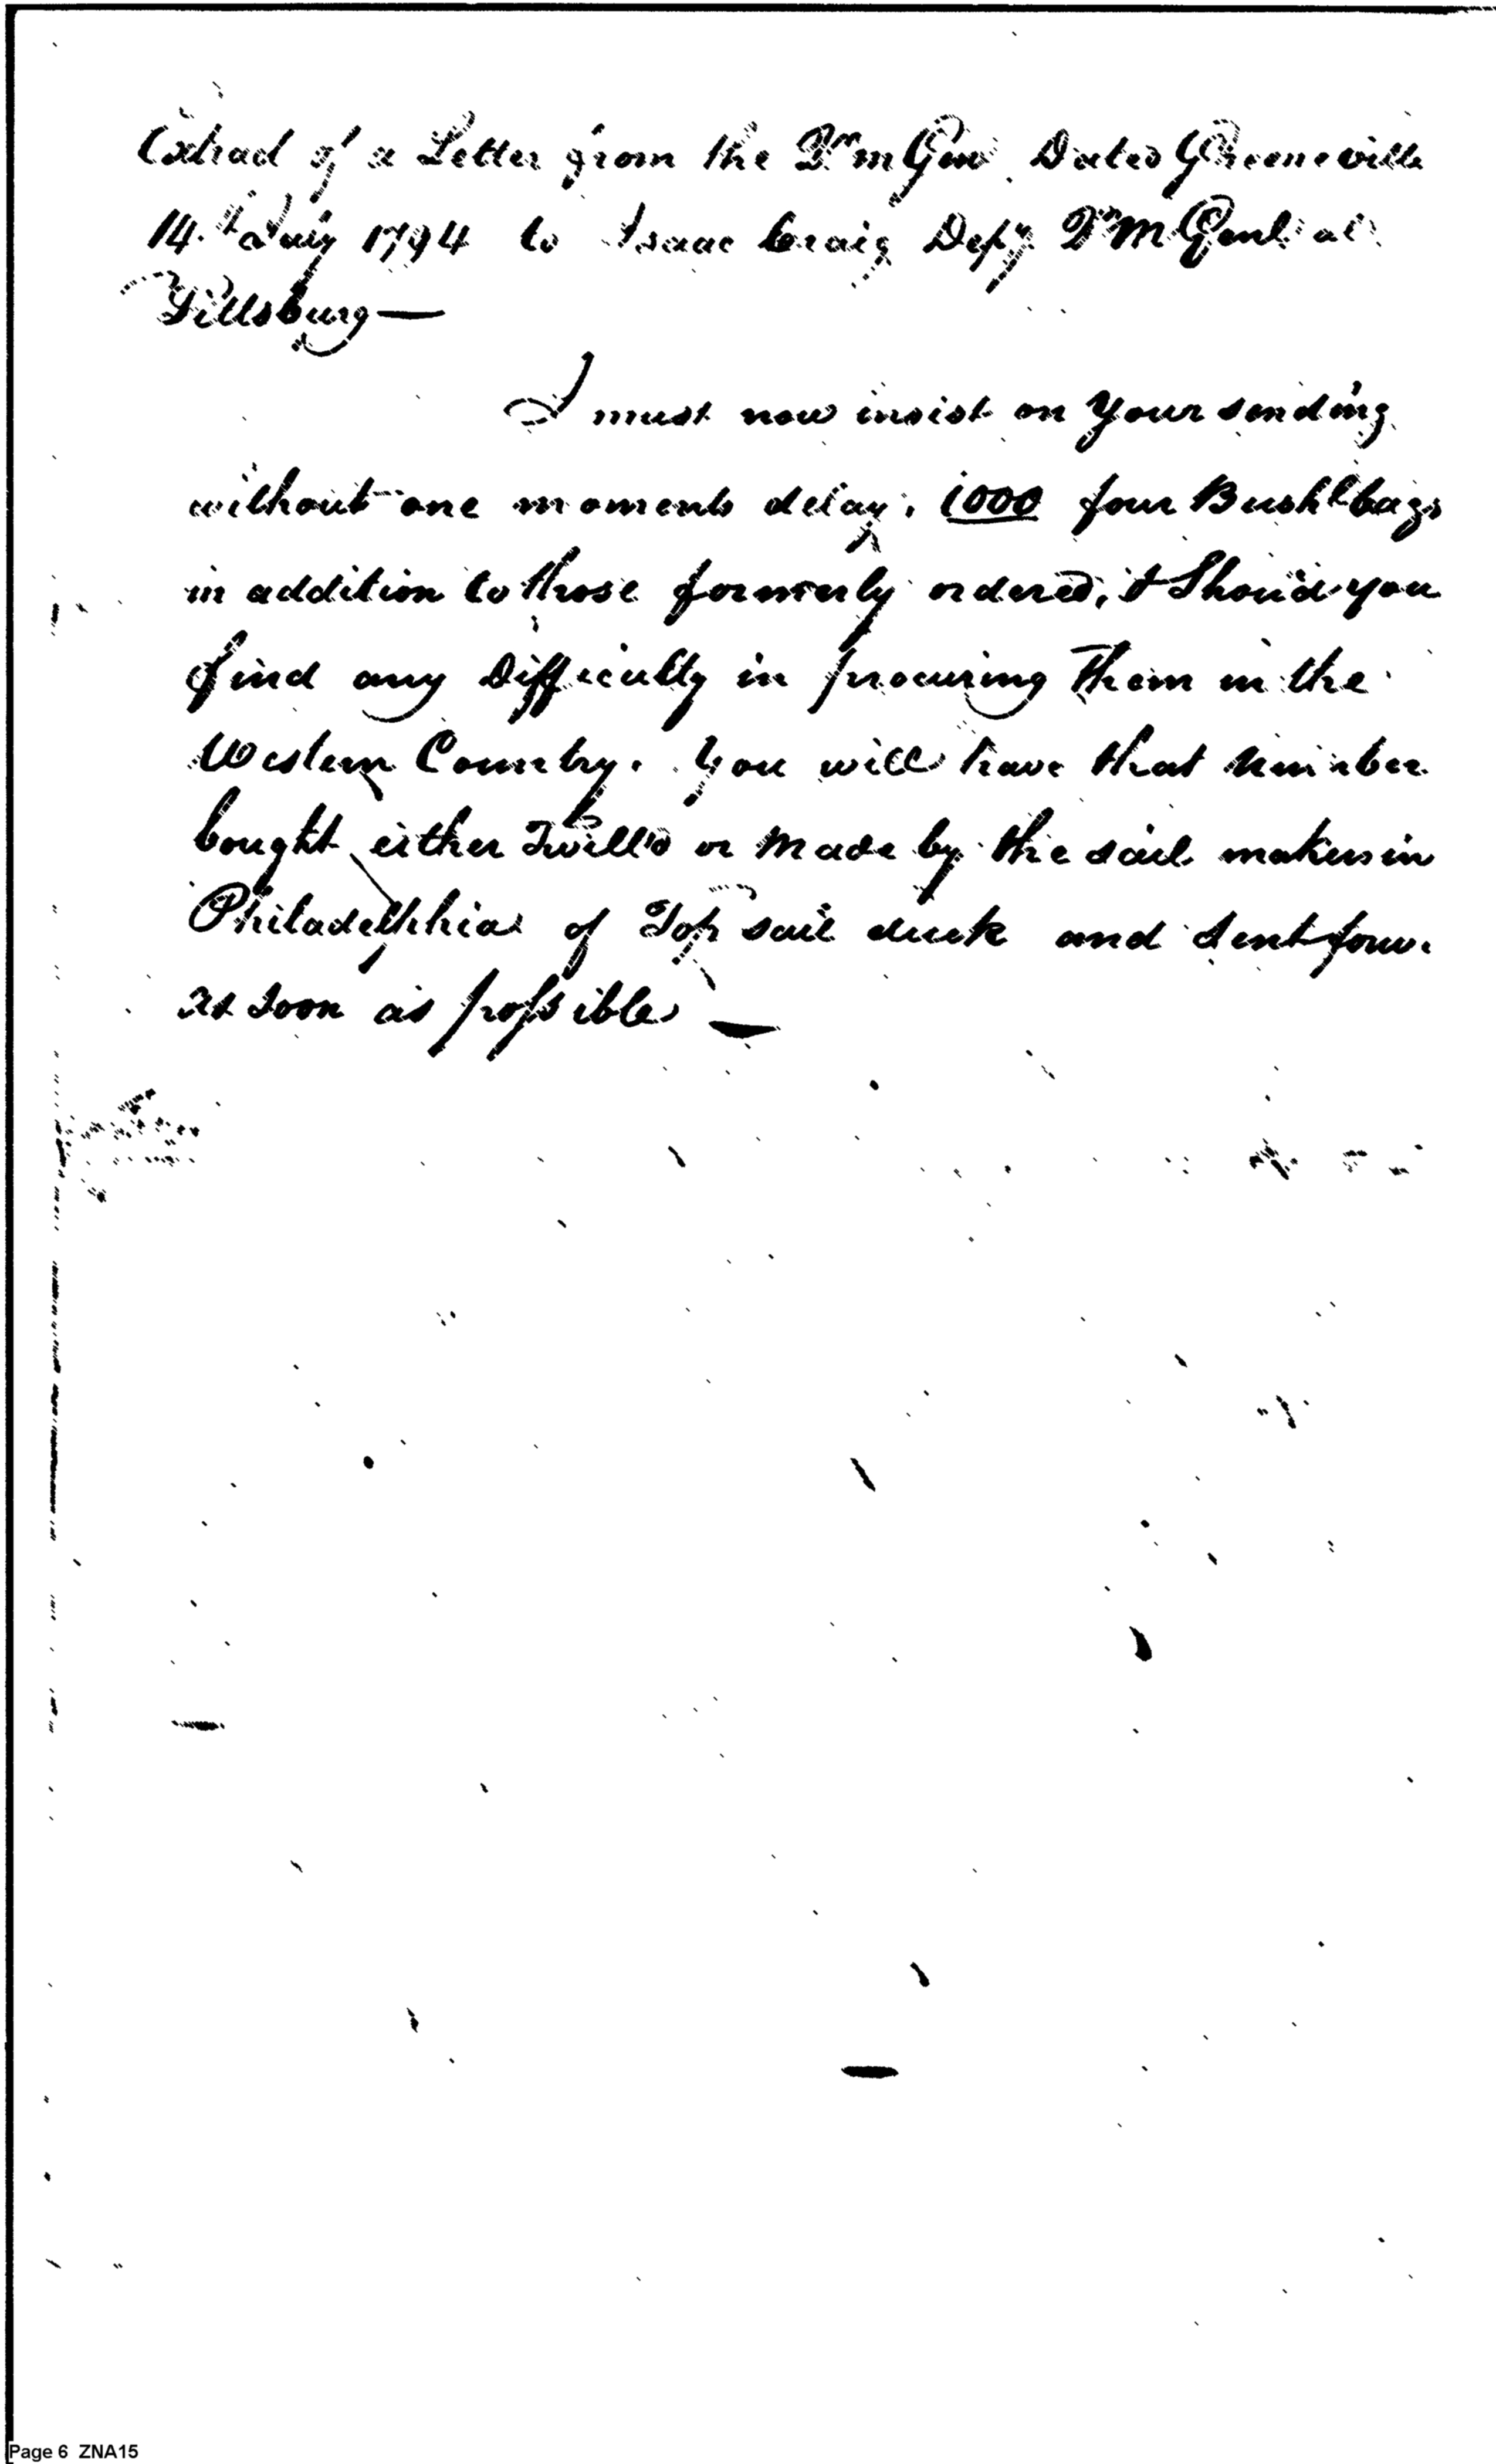 Extract of a Letter from the Qr m Genl Dated Greeneville
14th July 1794 to Isaac Craig Depy Qr M Genl at
Pittsburg—
I must now insist on your sending
without one moments delay, 1000 four Bushl bags
in addition to those formerly ordered, & Should you
find any Difficulty in procuring Them in the
Western Country. you will have that number
bought either Twill'd or Made by the sail makers in
Philadelphia of Top sail duck and sent forw.
as soon as possible —
Page 6 ZNA15